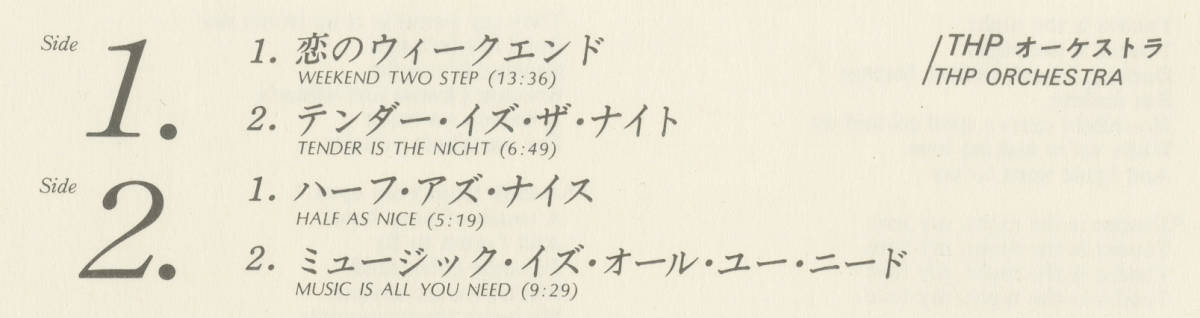 Side 1.
1. 恋のウィークエンド
WEEKEND TWO STEP (13:36)
2. テンダー・イズ・ザ・ナイト
TENDER IS THE NIGHT (6:49)
Side 2.
1. ハーフ・アズ・ナイス
HALF AS NICE (5:19)
2. ミュージック・イズ・オール・ユー・ニード
MUSIC IS ALL YOU NEED (9:29)
/THP オーケストラ
/THP ORCHESTRA